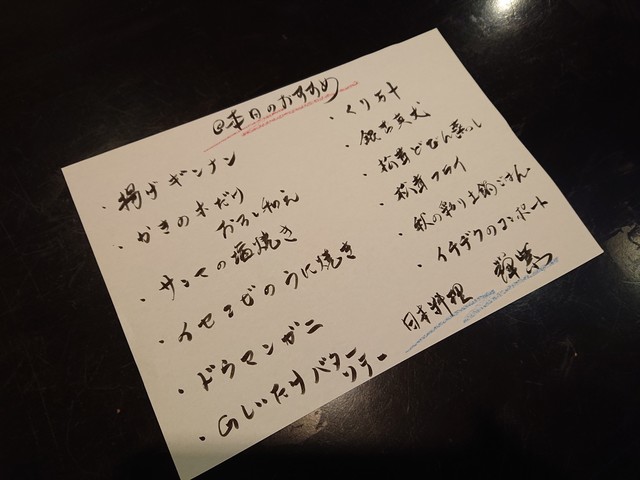 本日のおすすめ
・揚げギンナン
・かきの木だり
おろし和え
・サンマの塩焼き
・イセエビのうに焼き
・ドウマンガニ
・のしいたけバター
ソテー
・くり万十
・松茸どびん蒸し
・松茸フライ
・秋の彩り土鍋ごはん
・イチヂクのコンポート
日本料理